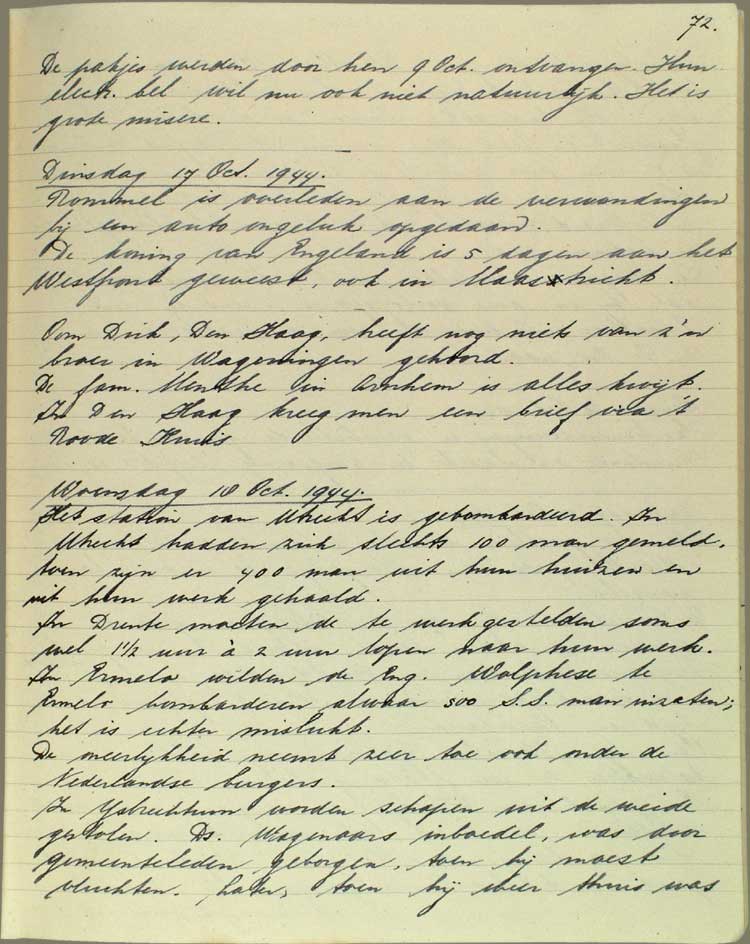 72.
De pakjes werden door hen 9 Oct. ontvangen. Hun
electr. bel wil nu ook niet natuurlijk. Het is
grote misere.
Dinsdag 17 Oct. 1944.
Rommel is overleden aan de verwondingen
bij een auto ongeluk opgedaan.
De koning van Engeland is 5 dagen aan het
Westfront geweest, ook in Maastricht.
Oom Dirk, Den Haag, heeft nog niets van z'n
broer in Wageningen gehoord.
De fam. Menthe in Arnhem is alles kwijt.
In Den Haag kreeg men een brief via 't
Roode Kruis
Woensdag 18 Oct. 1944.
Het station van Utrecht is gebombardeerd. In
Utrecht hadden zich slechts 100 man gemeld,
toen zijn er 400 man uit hun huizen en
uit hun werk gehaald.
In Drente moeten de te werk gestelden soms
wel 1 1/2 uur à 2 uur lopen naar hun werk.
In Ermelo wilden de Eng. Wolphese te
Ermelo bombarderen alwaar 500 S.S. man inzaten;
het is echter mislukt.
De oneerlijkheid neemt zeer toe ook onder de
Nederlandse burgers.
In Ysbrechtum worden schapen uit de weide
gestolen. Ds. Wagenaars inboedel, was door
gemeenteleden geborgen, toen hij moest
vluchten. Later, toen hij weer thuis was